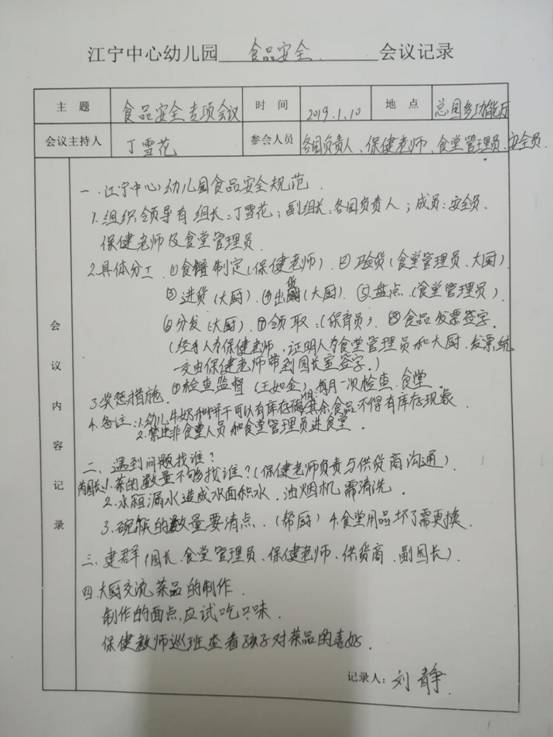 江宁中心幼儿园 食品安全 会议记录
主题 食品安全专项会议 时间 2019.1.10 地点 总园多功能厅
会议主持人 丁雪花 参会人员 各园负责人、保健老师、食堂管理员、安全员.
会议内容记录
一.江宁中心幼儿园食品安全规范.
1.组织领导有 组长:丁雪花;副组长:各园负责人;成员:安全员、
保健老师及食堂管理员.
2.具体分工 ①食谱制定(保健老师). ②验货(食堂管理员、大厨)
③进货(大厨). ④出货(大厨). ⑤盘点(食堂管理员).
⑥分发(大厨). ⑦领取:(保育员). ⑧食品发票签字.
(经办人为保健老师,证明人为食堂管理员和大厨.发票统
一交由保健老师带到园长室签字.)
3.奖惩措施. ①检查监督(王如金):每月一次检查.食堂.
4.备注:1.幼儿牛奶和饼干可以有库存,其余食品不得有库存现象
2.禁止非食堂人员和食堂管理员进食堂.
二、遇到问题找谁?
1.菜的数量不够找谁?(保健老师负责与供货商沟通).
2.水箱漏水造成水面积水.油烟机需清洗.
3.碗筷的数量要清点.(帮厨) 4.食堂用品坏了需更换.
三、建群(园长、食堂管理员、保健老师、供货商、副园长).
四.大厨交流菜品的制作.
制作的面点,应试吃口味.
保健教师巡班查看孩子对菜品的喜好.
记录人:刘静.